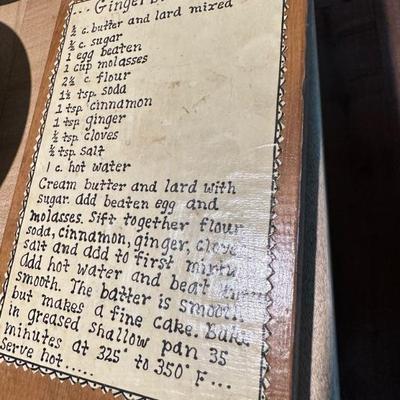 ... Gingerb
½ c. butter and lard mixed
½ c. sugar
1 egg beaten
1 cup molasses
2½ c. flour
1½ tsp. soda
1 tsp. cinnamon
1 tsp ginger
½ tsp. cloves
½ tsp. salt
1 c. hot water
Cream butter and lard with
sugar. Add beaten egg and
molasses. Sift together flour
soda, cinnamon, ginger, clove
salt and add to first mixtu
Add hot water and beat until
smooth. The batter is smooth
but makes a fine cake. Bake
in greased shallow pan 35
minutes at 325° to 350° F...
Serve hot.....